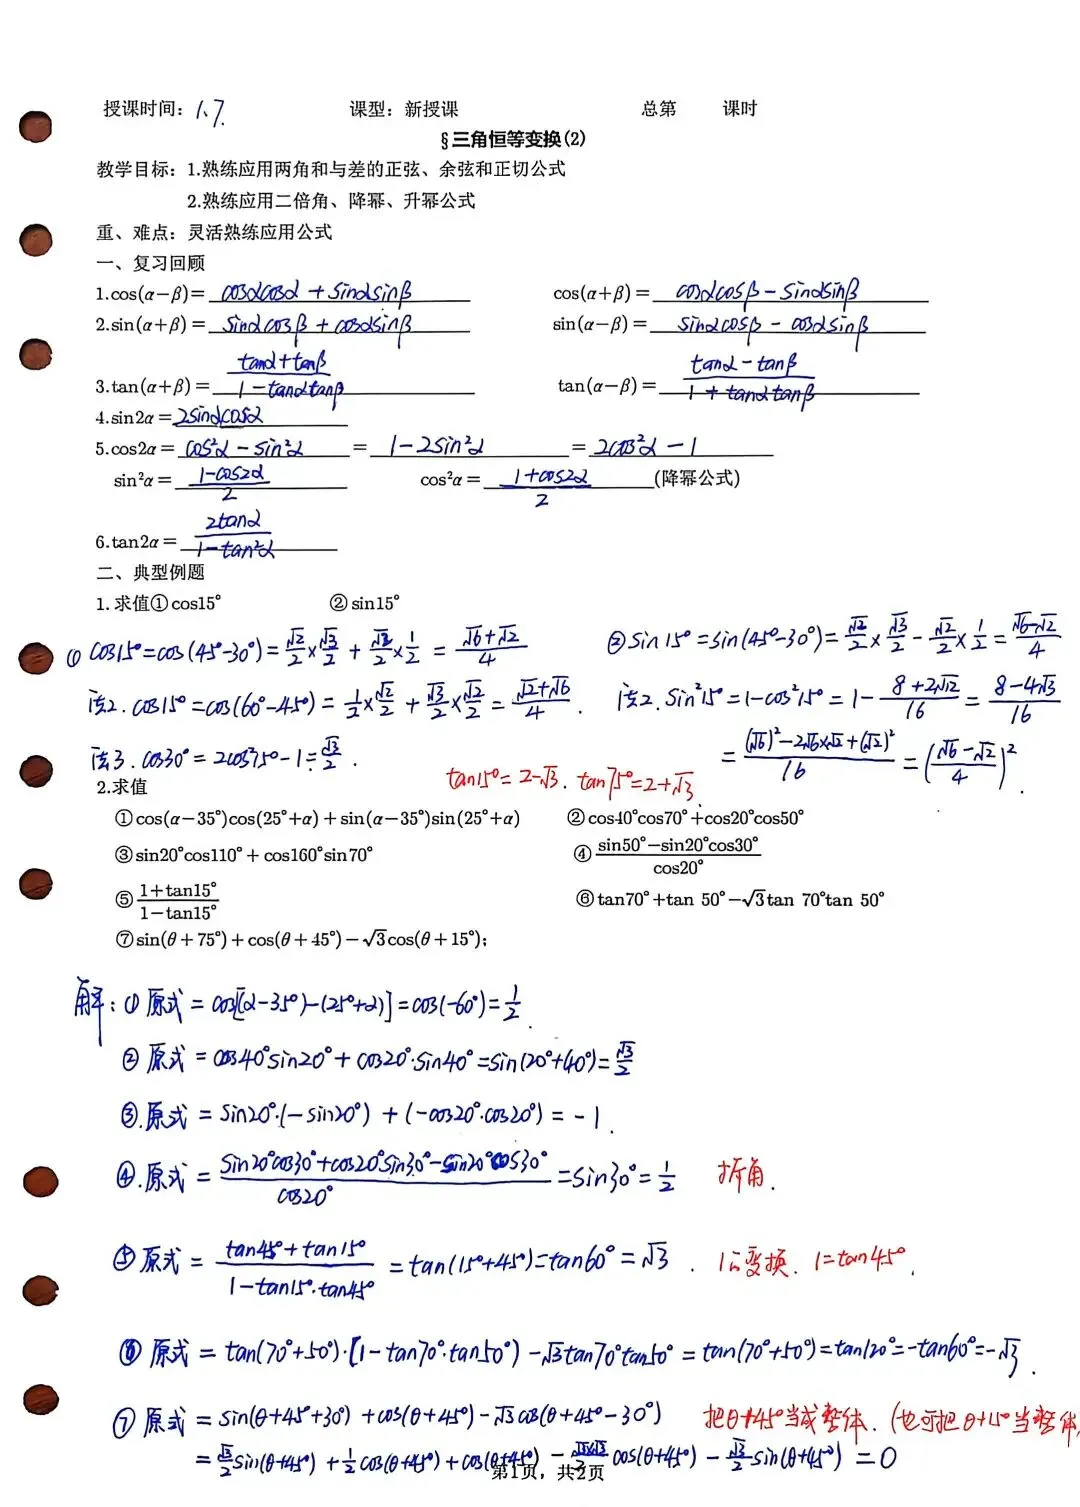 授课时间：1.7. 课型：新授课 总第 课时
§三角恒等变换(2)
教学目标：1.熟练应用两角和与差的正弦、余弦和正切公式
2.熟练应用二倍角、降幂、升幂公式
重、难点：灵活熟练应用公式
一、复习回顾
1.cos(α−β)= cosαcosα + sinαsinβ cos(α+β)= cosαcosβ − sinαsinβ
2.sin(α+β)= sinαcosβ + cosαsinβ sin(α−β)= sinαcosβ − cosαsinβ
3.tan(α+β)= (tanα+tanβ)/(1−tanαtanβ) tan(α−β)= (tanα−tanβ)/(1+tanαtanβ)
4.sin2α= 2sinαcosα
5.cos2α= cos²α − sin²α = 1−2sin²α = 2cos²α −1
sin²α= (1−cos2α)/2 cos²α= (1+cos2α)/2 (降幂公式)
6.tan2α= 2tanα/(1−tan²α)
二、典型例题
1. 求值①cos15° ②sin15°
① cos15°=cos(45°−30°)= √2/2×√3/2 + √2/2×1/2 = (√6+√2)/4
②sin15°=sin(45°−30°)= √2/2×√3/2 − √2/2×1/2 = (√6−√2)/4
法2. cos15°=cos(60°−45°)= 1/2×√2/2 + √3/2×√2/2 = (√2+√6)/4.
法2. sin²15°=1−cos²15°= 1− (8+2√12)/16 = (8−4√3)/16
= ((√6)²−2√6×√2+(√2)²)/16 = ((√6−√2)/4)².
法3. cos30°= 2cos²15°−1= √3/2.
tan15°= 2−√3. tan75°=2+√3.
2.求值
①cos(α−35°)cos(25°+α)+sin(α−35°)sin(25°+α) ②cos40°cos70°+cos20°cos50°
③sin20°cos110°+cos160°sin70° ④(sin50°−sin20°cos30°)/cos20°
⑤(1+tan15°)/(1−tan15°) ⑥tan70°+tan 50°−√3tan 70°tan 50°
⑦sin(θ+75°)+cos(θ+45°)−√3cos(θ+15°);
解：①原式 = cos[(α−35°)−(25°+α)]=cos(−60°)=1/2.
②原式 = cos40°sin20°+ cos20°·sin40°=sin(20°+40°)=√3/2
③.原式 = sin20°·(−sin20°) + (−cos20°·cos20°) = −1.
④.原式 = (sin20°cos30°+cos20°sin30°−sin20°cos30°)/cos20° =sin30°=1/2 拆角.
⑤原式 = (tan45°+tan15°)/(1−tan15°·tan45°) = tan(15°+45°)=tan60°=√3. 1的变换. 1=tan45°.
⑥原式 = tan(70°+50°)·[1−tan70°·tan50°) −√3tan70°tan50° = tan(70°+50°)=tan120°=−tan60°=−√3.
⑦原式 = sin(θ+45°+30°) +cos(θ+45°)−√3cos(θ+45°−30°) 把θ+45°当成整体. (也可把θ+15°当整体
= √3/2sin(θ+45°) + 1/2cos(θ+45°)+cos(θ+45°) − √3×√3/2cos(θ+45°) − √3/2sin(θ+45°) = 0
第1页，共2页